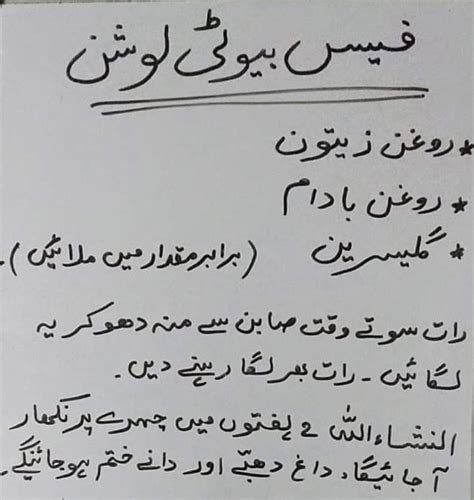 فیس بیوٹی لوشن
* روغن زیتون
* روغن بادام
* گلیسرین (برابر مقدار میں ملائیں)۔
رات سوتے وقت صابن سے منہ دھو کر یہ
لگائیں ۔ رات بھر لگا رہنے دیں ۔
انشاءاللہ 2 ہفتوں میں چہرے پر نکھار
آجائیگا، داغ دھبّے اور دانے ختم ہوجائینگے۔